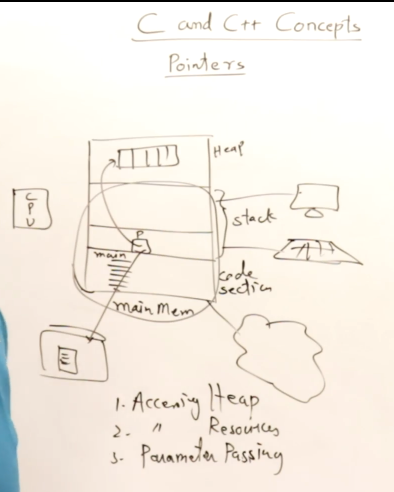 C and C++ Concepts
Pointers
Heap
CPU
stack
P
main
code
section
main Mem
1. Accessing Heap
2. " Resources
3. Parameter Passing